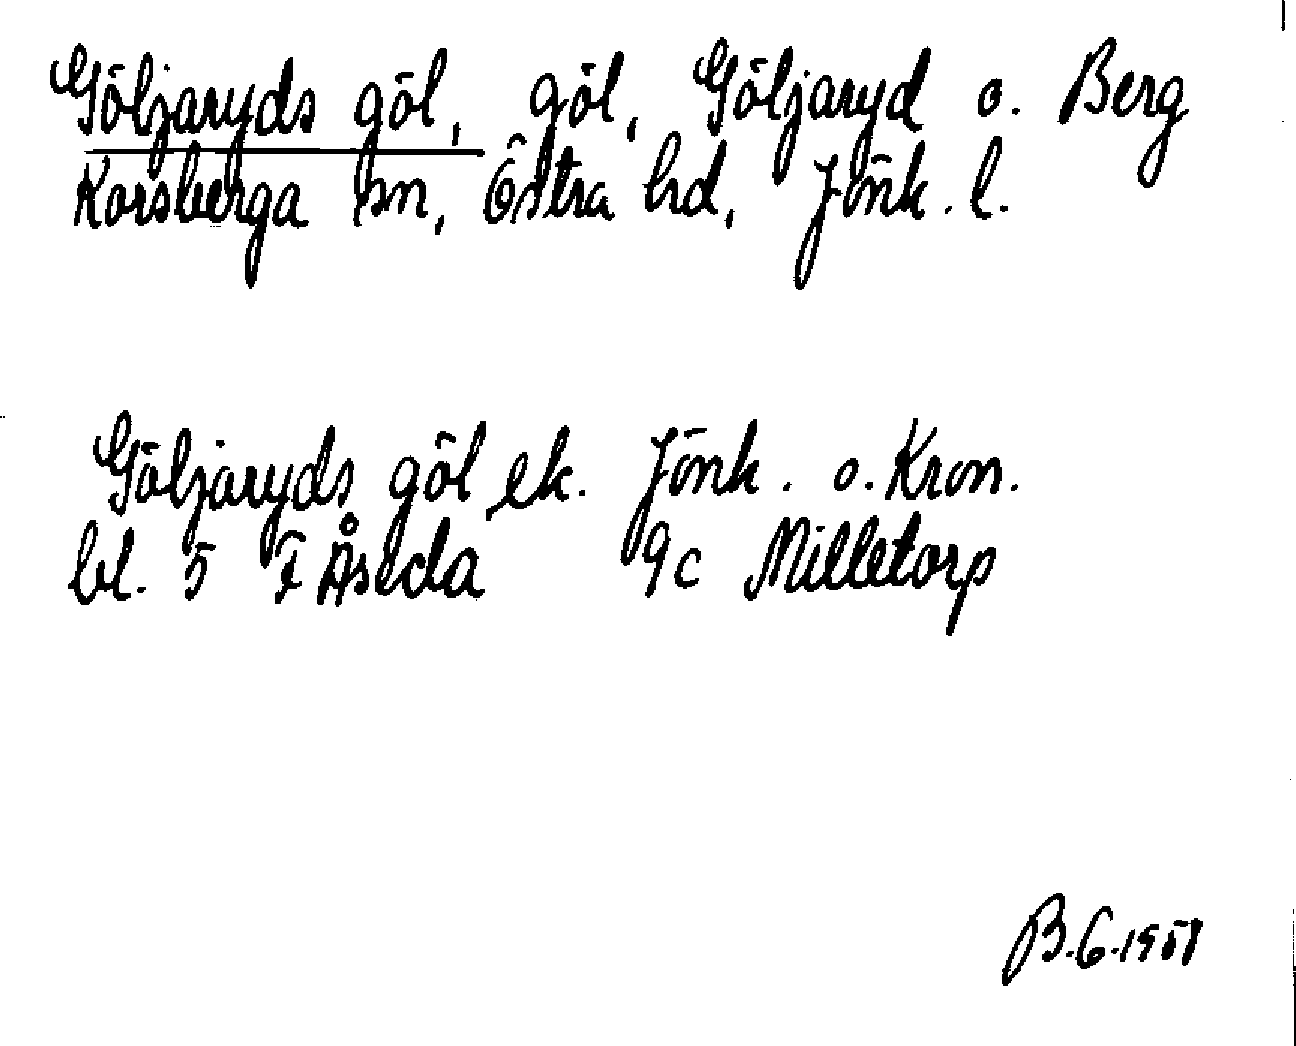 Göljaryds göl, göl, Göljaryd o. Berg
Korsberga sn, Östra hd, Jönk. l.
Göljaryds göl ek. Jönk. o. Kron.
bl. 5 F Åseda 9c Milletorp
B.G. 1951